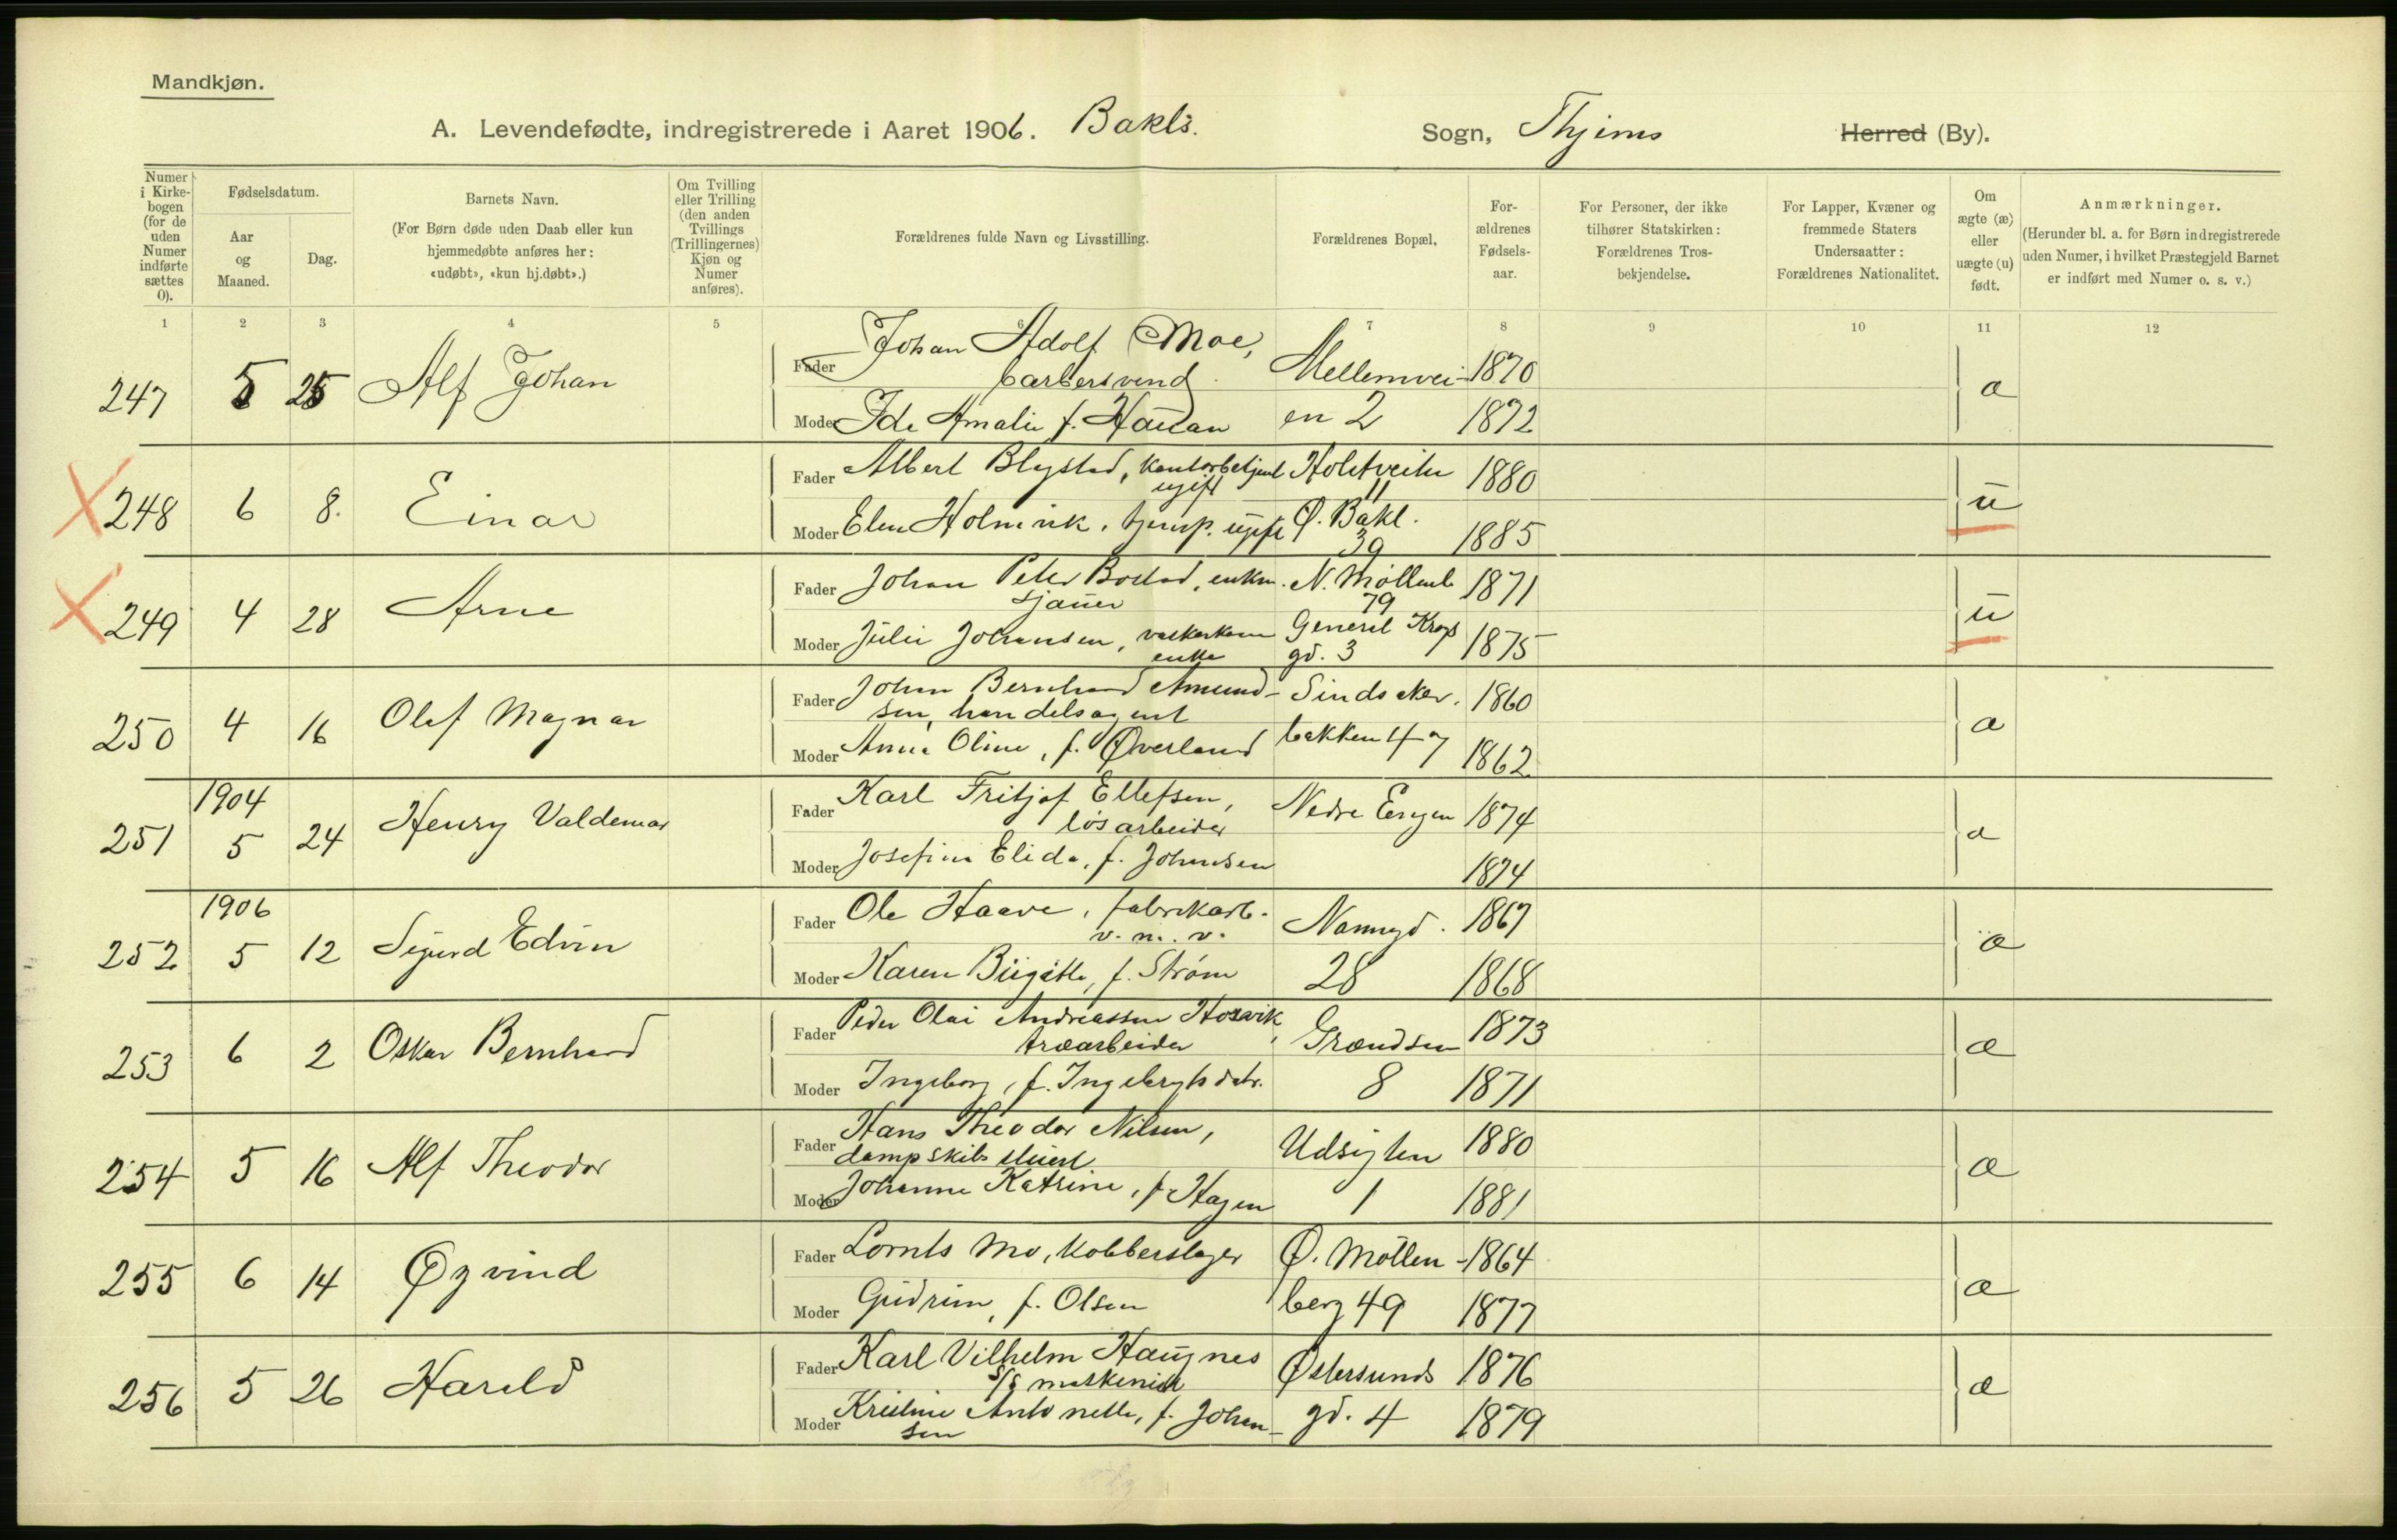 Mandkjøn.
A. Levendefødte, indregistrerede i Aaret 1906. Bakls. Sogn, Thjems Herred (By).
Numer i Kirkebogen (for de uden Numer indførte sættes 0).
Fødselsdatum.
Aar og Maaned.
Dag.
Barnets Navn.
(For Børn døde uden Daab eller kun hjemmedøbte anføres her: «udøbt», «kun hj.døbt».)
Om Tvilling eller Trilling (den anden Tvillings (Trillingernes) Kjøn og Numer anføres).
Forældrenes fulde Navn og Livsstilling.
Forældrenes Bopæl.
Forældrenes Fødselsaar.
For Personer, der ikke tilhører Statskirken: Forældrenes Trosbekjendelse.
For Lapper, Kvæner og fremmede Staters Undersaatter: Forældrenes Nationalitet.
Om ægte (æ) eller uægte (u) født.
Anmærkninger.
(Herunder bl. a. for Børn indregistrerede uden Numer, i hvilket Præstegjeld Barnet er indført med Numer o. s. v.)
1 2 3 4 5 6 7 8 9 10 11 12
247 5 25 Alf Johan
Fader Johan Adolf Moe, Mellemvei- 1870 æ
barbersvend
Moder Ida Amalie f. Haugan en 2 1872
248 6 8. Einar
Fader Albert Blystad, kontorbetjent Holstveiten 1880 u
ugift 11
Moder Elen Holmvik, tjenesp. ugift Ø. Bakl. 1885
39
249 4 28 Arne
Fader Johan Peter Bostad, enkm. N. Møllenb 1871 u
sjauer 79
Moder Julie Johansen, vaskerkone General Krogs 1875
enke gd. 3
250 4 16 Olaf Magnar
Fader Johan Bernhard Amund- Sindsaker. 1860 æ
sen, handelsagent
Moder Anna Oline, f. Øverland bakken 47 1862
1904
251 5 24 Henry Valdemar
Fader Karl Fritjof Ellefsen, Nedre Engen 1874 æ
løsarbeider
Moder Josefine Elida, f. Johansen 1874
1906
252 5 12 Sigurd Edvin
Fader Ole Haave, fabrikarb. Nannagd. 1867 æ
v. m. v.
Moder Karen Birgitte, f. Strøm 28 1868
253 6 2 Oskar Bernhard
Fader Peder Olai Andreassen Hosvik, Grændsen 1873 æ
træarbeider
Moder Ingeborg, f. Ingebrigtsdatr. 8 1871
254 5 16 Alf Theodor
Fader Hans Theodor Nilsen, Udsigten 1880 æ
dampskibs stuert
Moder Johanne Katrine, f. Hagen 1 1881
255 6 14 Øyvind
Fader Lornts Mo, kobberslager Ø. Møllen- 1864 æ
Moder Gudrun, f. Olsen berg 49 1877
256 5 26 Harald
Fader Karl Vilhelm Haugnes Østersunds 1876 æ
S/S maskenist
Moder Kristine Antonette, f. Johan- gd. 4 1879
sen